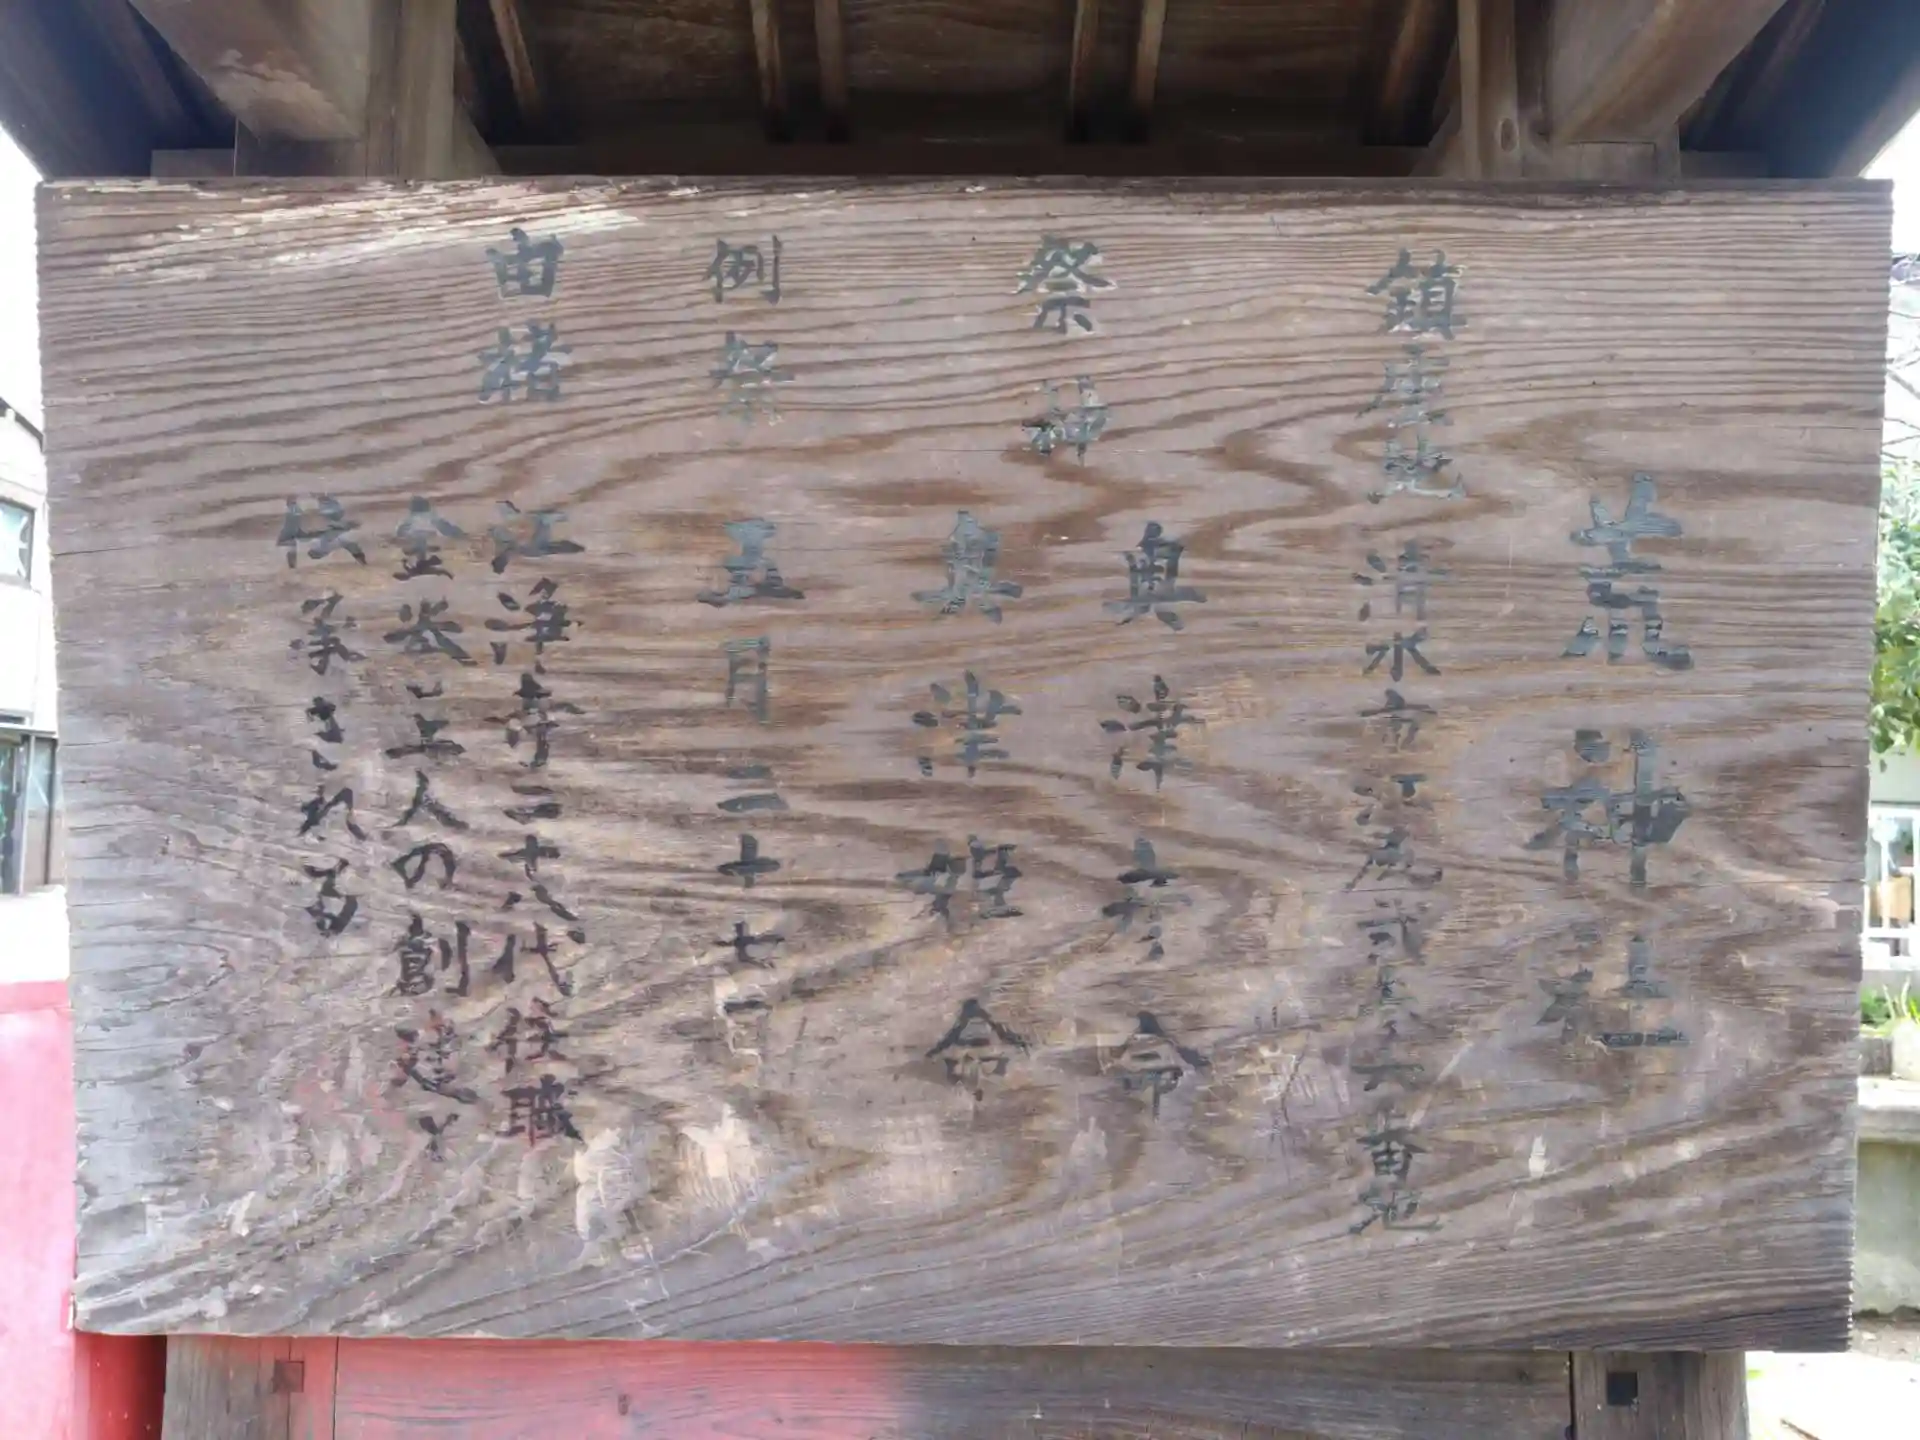 荒神社
鎮座地 清水市江尻弐百六番地
祭神 奥津彦命
奥津姫命
例祭 五月二十七日
由緒 江浄寺二十八代住職
金谷上人の創建と
伝承される